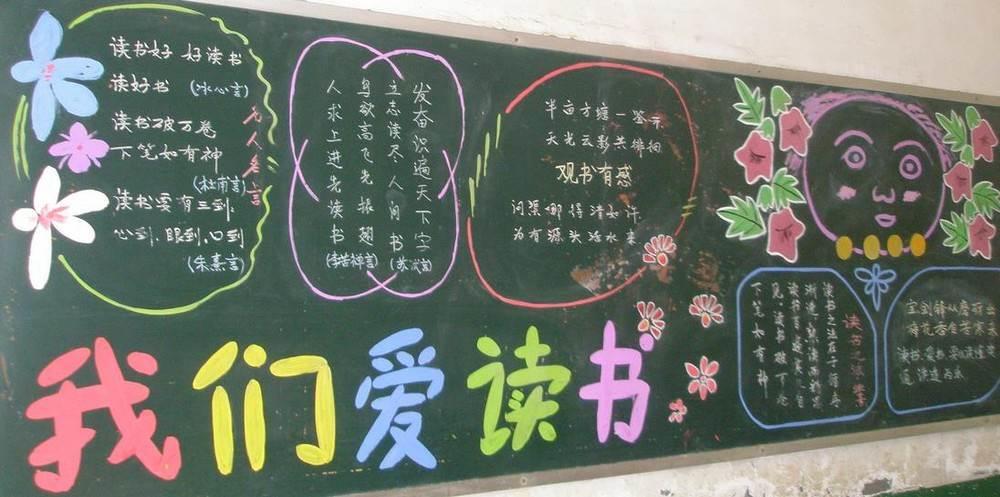 读书好 好读书
读好书 (冰心言)
读书破万卷
下笔如有神
(杜甫言)
读书要有三到:
心到,眼到,口到
(朱熹言)
名人名言
发奋识遍天下字
立志读尽人间书 (苏轼言)
鸟欲高飞先振翅
人求上进先读书 (李苦禅言)
半亩方塘一鉴
天光云影共徘徊
观书有感
问渠哪得清如许
为有源头活水来
读书之法
读书之法在于循序
渐进
见读书破万卷
下笔如有神
宝剑锋从磨砺出
梅花香自苦寒来
我们爱读书